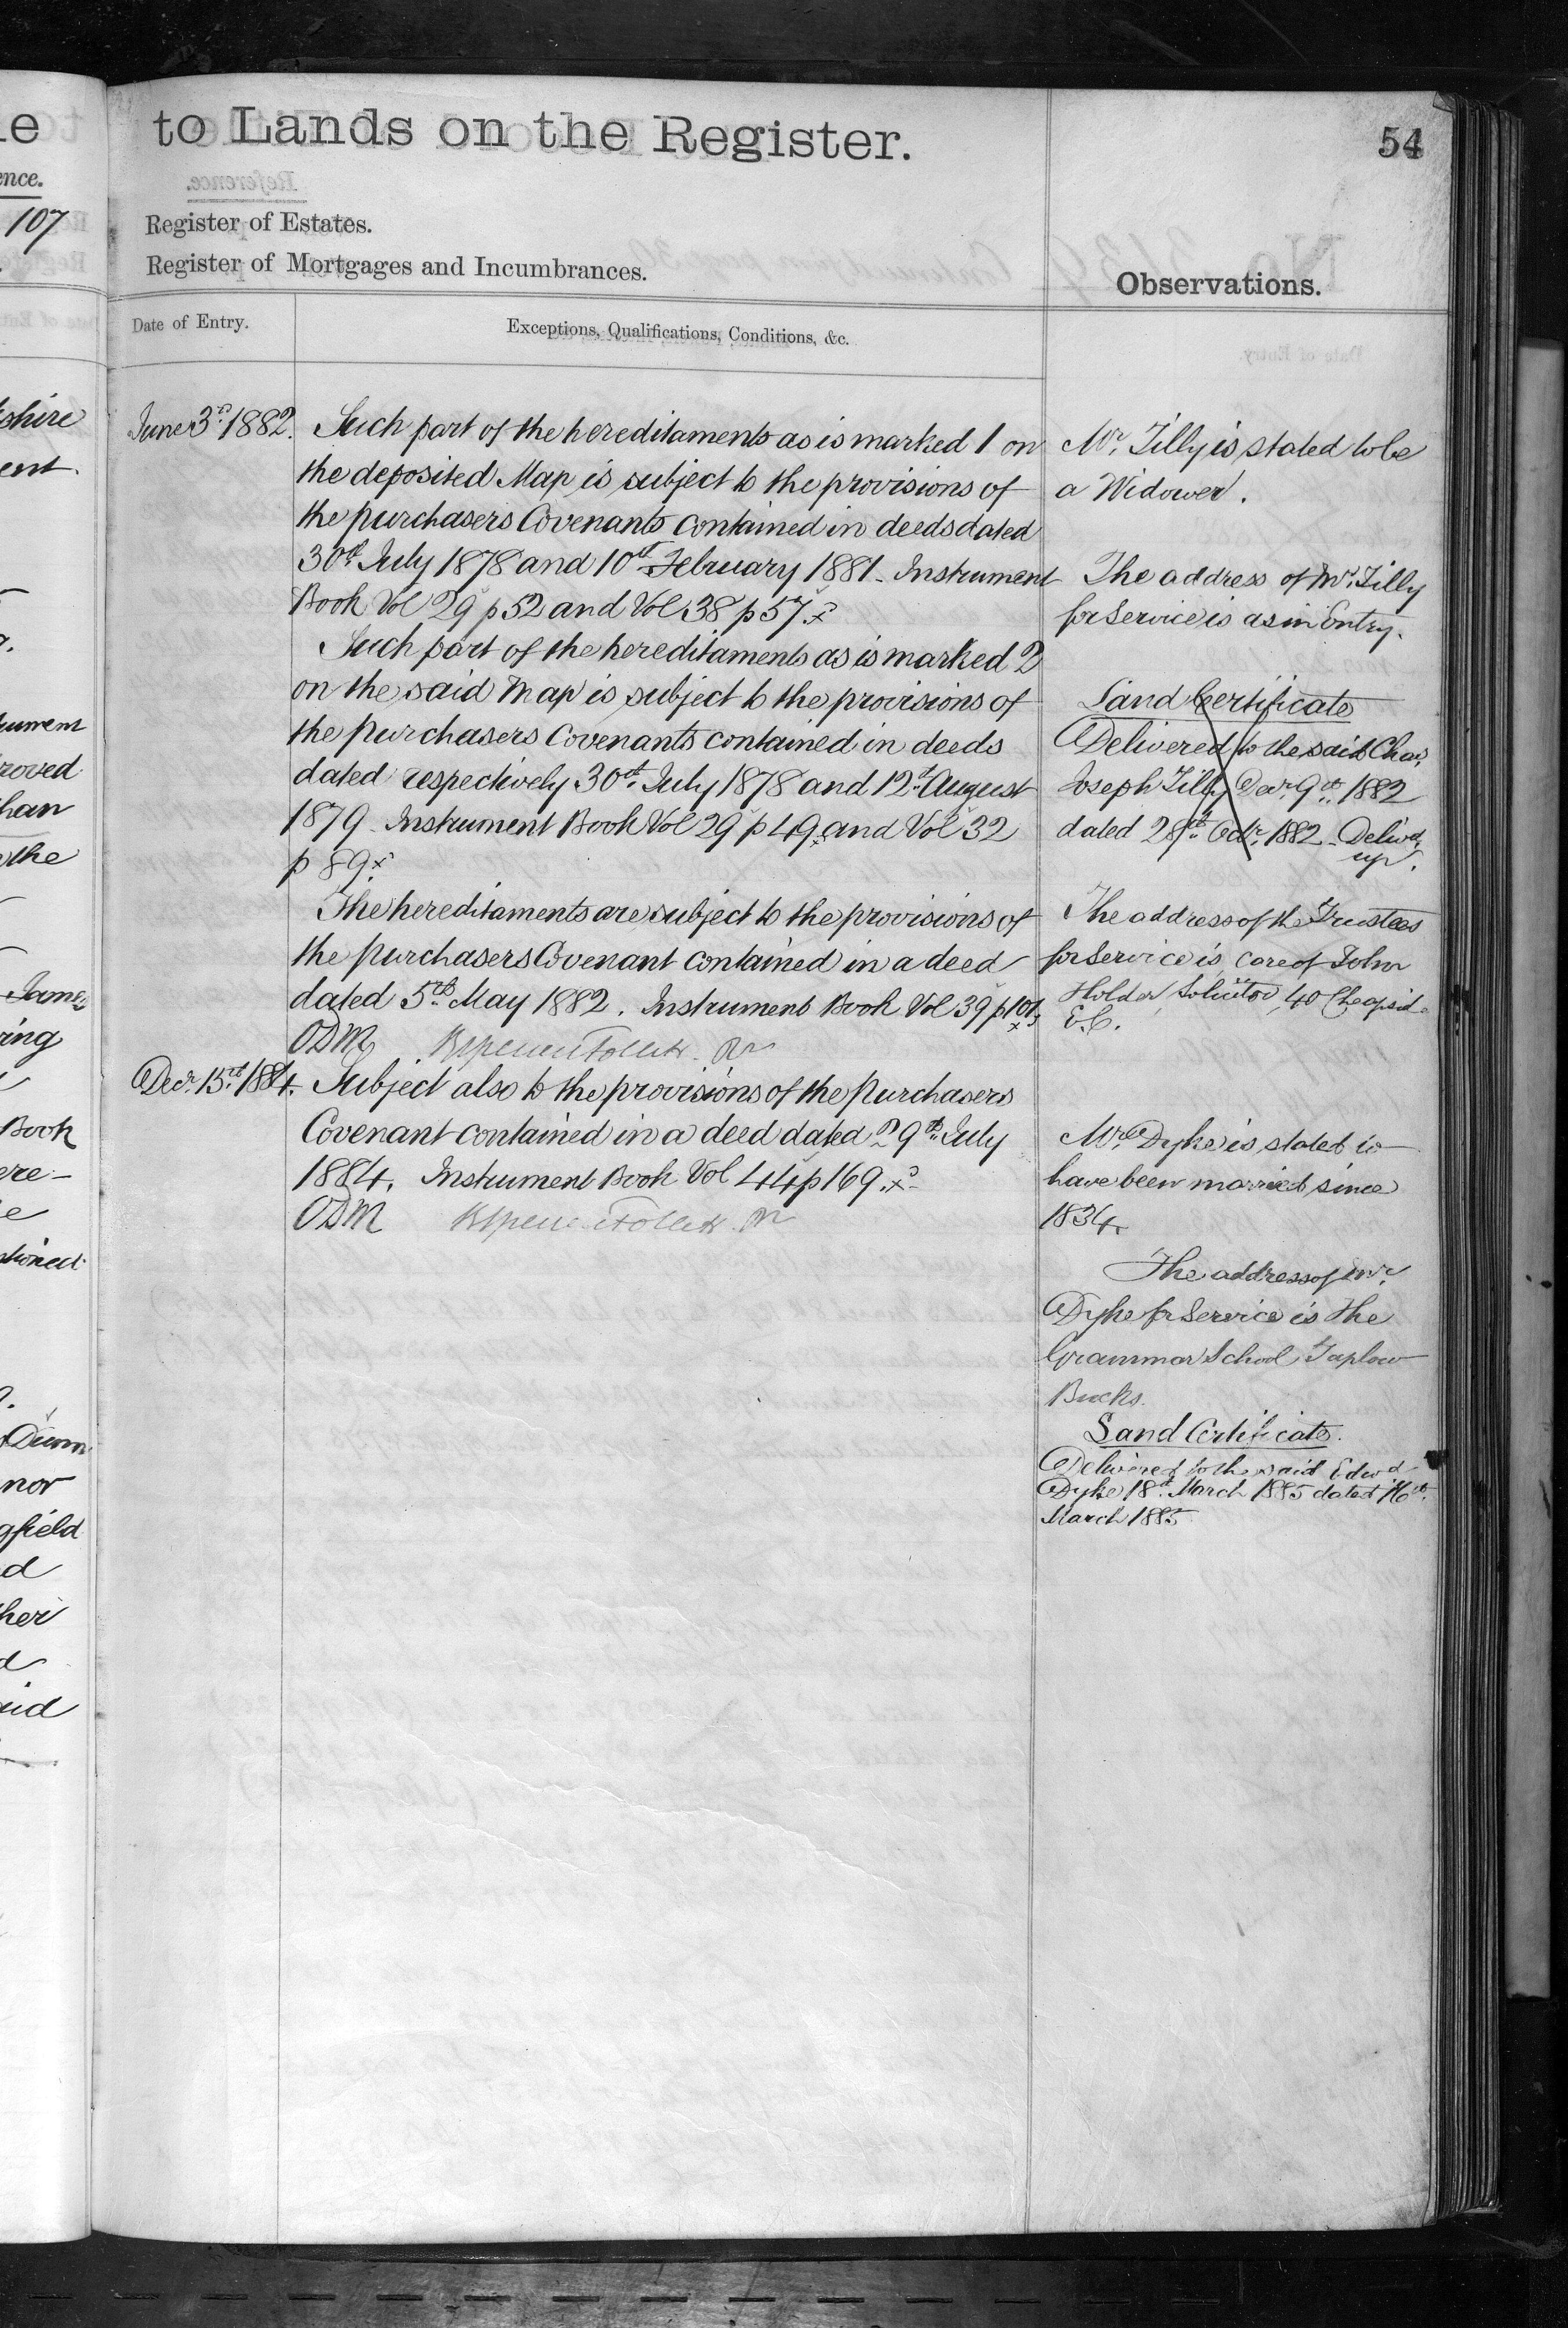 to Lands on the Register.
54
Register of Estates.
Register of Mortgages and Incumbrances.
Observations.
Date of Entry.
Exceptions, Qualifications, Conditions, &c.
June 3rd 1882.
Such part of the hereditaments as is marked 1 on
the deposited Map is subject to the provisions of
the purchasers Covenants contained in deeds dated
30th July 1878 and 10th February 1881. Instrument
Book Vol 29 p 52 and Vol 38 p 57.
Such part of the hereditaments as is marked 2
on the said Map is subject to the provisions of
the purchasers Covenants contained in deeds
dated respectively 30th July 1878 and 12th August
1879. Instrument Book Vol 29 p 49 and Vol 32
p 89.
The hereditaments are subject to the provisions of
the purchasers Covenant contained in a deed
dated 5th May 1882. Instrument Book Vol 39 p 101
ODM
Decr 15th 1884.
Subject also to the provisions of the purchasers
Covenant contained in a deed dated 29th July
1884. Instrument Book Vol 44 p 169.
ODM
Mr. Tilly is stated to be
a Widower.
The address of Mr. Tilly
for Service is as in Entry.
Land Certificate
Delivered to the said Chas.
Joseph Tilly Decr. 9th 1882
dated 28th Octr. 1882 - Delivd.
up.
The address of the Trustees
for Service is care of John
Holder, Solicitor, 40 Cheapside
E.C.
Mr. Dyke is stated to
have been married since
1834.
The address of Mr.
Dyke for Service is the
Grammar School Taplow
Bucks.
Land Certificate.
Delivered to the said Edwd
Dyke 18th March 1885 dated 16th
March 1885
le
ence.
107
shire
ent.
ument
roved
han
the
James
ring
Book
ere-
e
tioned
Dunn
nor
gfield
d
her
d
aid